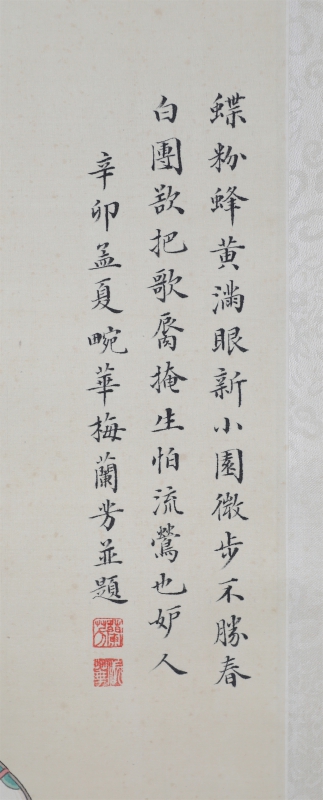 蝶粉蜂黄滿眼新小園微步不勝春
白團欲把歌脣掩生怕流鶯也妒人
辛卯孟夏畹華梅蘭芳並題